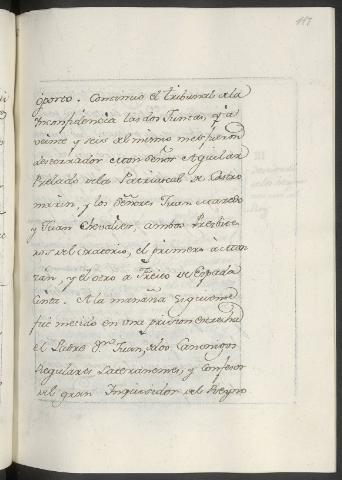 117
oporto. Comunicó el tribunal de la
Inconfidencia las dos Juntas, y a
veinte y seis del mismo mes fueron
desterrados el Señor Aguilar
Prelado de la Patriarcal de Castro
marin, y los Señores Juan
y Juan Chevalier, ambos Presbite
ros del oratorio, el primero a
y el otro a Freixo de Espada
Cinta. A la mañana siguiente
fue metido en una prision estrecha
el Padre Dn. Juan, de los Canonigos
Reglares Lateranenses, y Confesor
del gran Inquisidor del Reyno